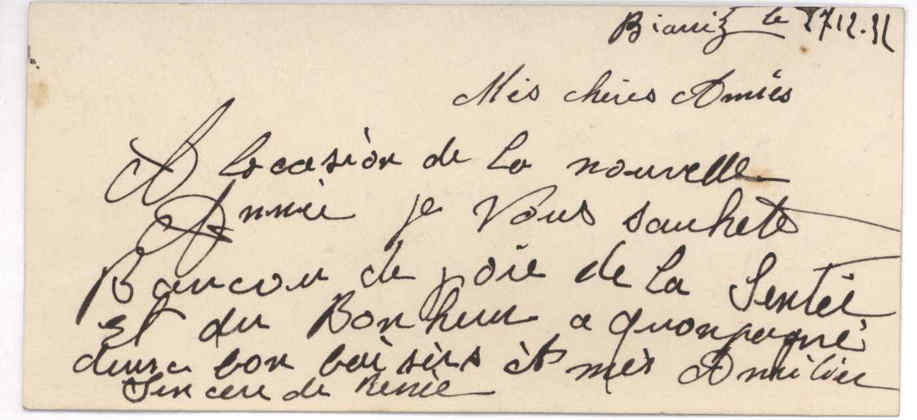 Biarritz le 27.12.31
Mes chères Amiés
A locasion de la nouvelle
Année je vous sauhete
Baucou de joie de la Sentée
et du Bonheur a quonpagné
deune bon baisers èt mes Amitiér
Sincere de Renée